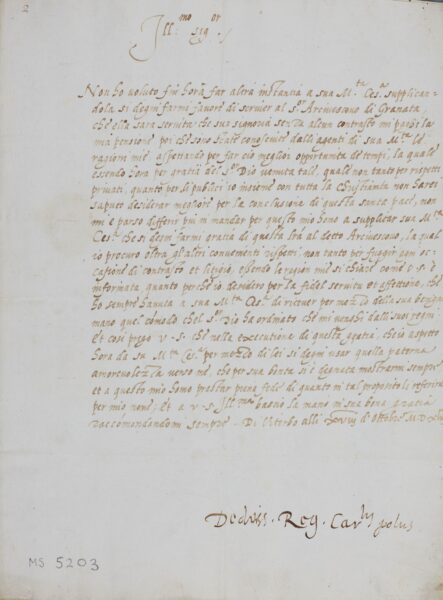 2
Ill.mo sig.or
Non ho voluto fin hora far altra instantia a sua M.tà Ces.a supplican-
dola si degni farmi favore di scriver al s.or Arcivescovo di Granata,
che ella sarà servita che sua signoria senza alcun contrasto mi paghi la
mia pensione poi che sono state conosciute dalli agenti di sua M.tà le
ragioni mie aspettando per far ciò meglior opportunità de tempi, la quale
essendo hora per gratia del S.or Dio venuta tale, quale non tanto per rispetti
privati, quanto per li publici io insieme con tutta la Christianità non harei
saputo desiderar megliore per la conclusione di questa santa pace, non
mi è parso differir più in mandar per questo mio homo a supplicar sua M.tà
Ces.a che si degni farmi gratia di questa al detto Arcivescovo, la qual
io procuro oltra gli altri convenienti rispetti, non tanto per fuggir ogni oc-
casione di contrasto et litigio, essendo le ragion mie sì chiare come v. s. è
informata, quanto perche io desidero per la fidel servitu et affettione, che
ho sempre havuta a sua M.tà Ces.a di ricever per mezzo della sua benigna
mano quel comodo chel s.or Dio ha ordinato che mi venghi dalli suoi regni
et così prego v. s. che nella executione di questa gratia che io aspetto
hora da su M.tà Ces.a per mezzo di lei si degni usar quella paterna
amorevolezza verso me, che per sua bontà si è degnata mostrarmi sempre
et a questo mio homo prestar piena fede di quanto in tal proposito li referirà
per mio nome. et a v. s. Ill.ma bascio la mano in sua bona gratia
raccomandandomi sempre. Di Viterbo alli di ottobre M D
Reg. Car.lis polus
MS 5203